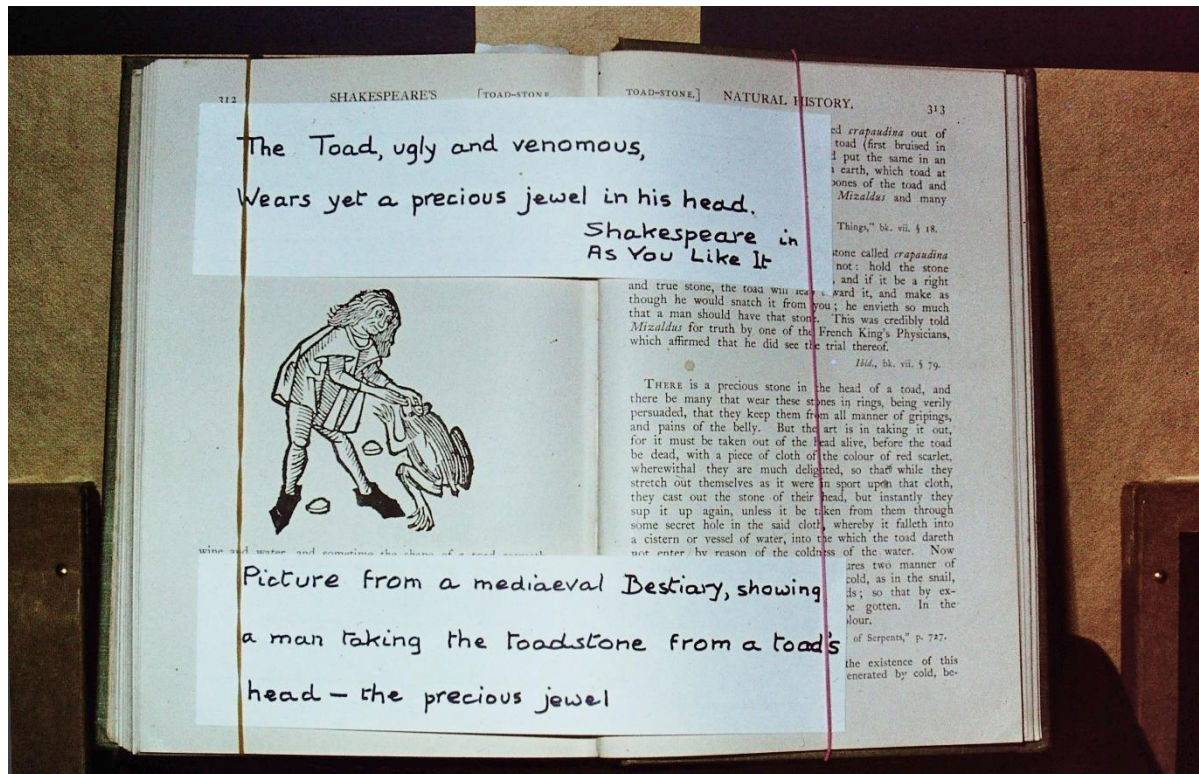 312 SHAKESPEARE'S [TOAD-STONE
The Toad, ugly and venomous,
Wears yet a precious jewel in his head.
Shakespeare in
As You Like It
wine and water, and sometime the shape of a toad
Picture from a mediaeval Bestiary, showing
a man taking the toadstone from a toad's
head – the precious jewel
TOAD-STONE.] NATURAL HISTORY. 313
crapaudina out of
toad (first bruised in
put the same in an
earth, which toad at
bones of the toad and
Mizaldus and many
Things," bk. vii. § 18.
stone called crapaudina
not: hold the stone
and if it be a right
and true stone, the toad will leap toward it, and make as
though he would snatch it from you; he envieth so much
that a man should have that stone. This was credibly told
Mizaldus for truth by one of the French King's Physicians,
which affirmed that he did see the trial thereof.
Ibid., bk. vii. § 79.
THERE is a precious stone in the head of a toad, and
there be many that wear these stones in rings, being verily
persuaded, that they keep them from all manner of gripings,
and pains of the belly. But the art is in taking it out,
for it must be taken out of the head alive, before the toad
be dead, with a piece of cloth of the colour of red scarlet,
wherewithal they are much delighted, so that while they
stretch out themselves as it were in sport upon that cloth,
they cast out the stone of their head, but instantly they
sup it up again, unless it be taken from them through
some secret hole in the said cloth, whereby it falleth into
a cistern or vessel of water, into the which the toad dareth
not enter by reason of the coldness of the water. Now
two manner of
cold, as in the snail,
so that by ex-
gotten. In the
of Serpents," p. 727.
the existence of this
generated by cold, be-